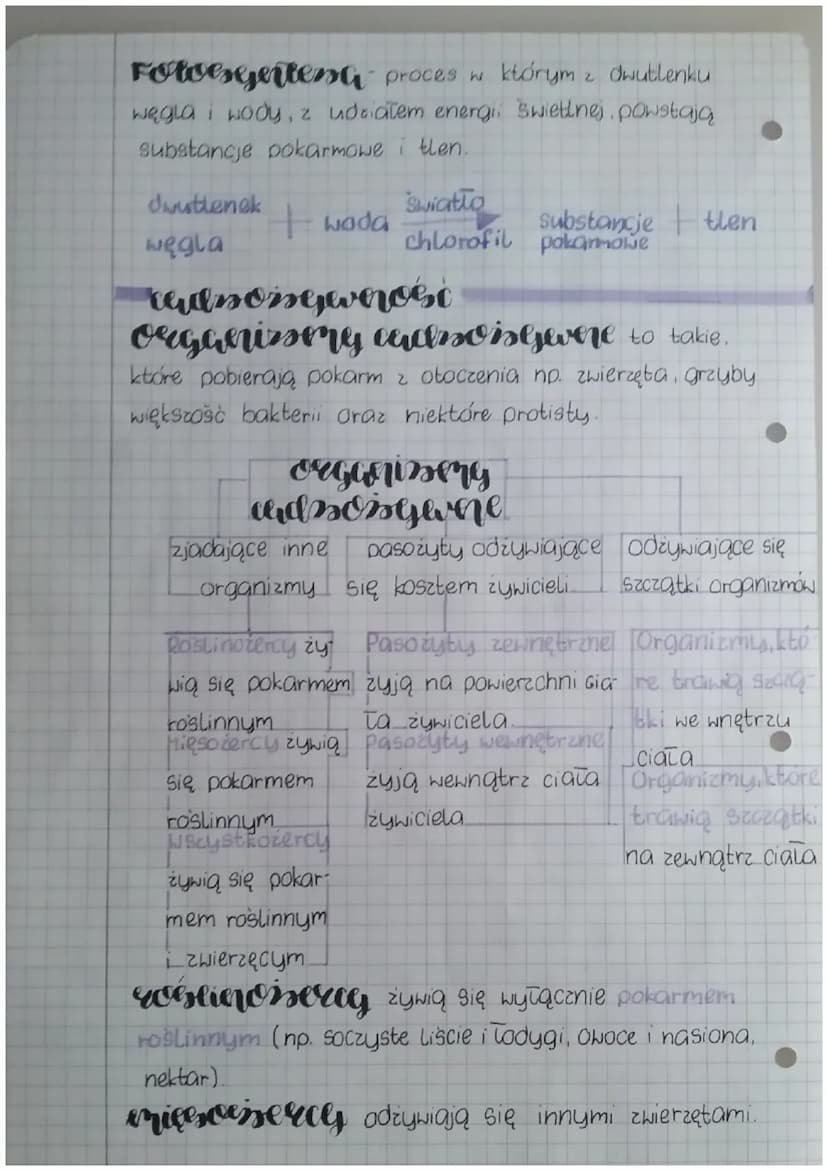 Fotosynteza - proces w którym z dwutlenku
węgla i wody, z udziałem energii świetlnej, powstają
substancje pokarmowe i tlen.
dwutlenek węgla + woda światło chlorofil substancje pokarmowe + tlen
cudzożywność
organizmy cudzożywne to takie,
które pobierają pokarm z otoczenia np. zwierzęta, grzyby
większość bakterii oraz niektóre protisty.
organizmy
cudzożywne
zjadające inne
organizmy
pasożyty odżywiające
się kosztem żywicieli
odżywiające się
szczątki organizmów
Roślinożercy ży-
wią się pokarmem
roślinnym
Mięsożercy żywią
się pokarmem
roślinnym
Wszystkożercy
żywią się pokar-
mem roślinnym
i zwierzęcym
Pasożyty zewnętrzne
żyją na powierzchni cia-
ła żywiciela
Pasożyty wewnętrzne
żyją wewnątrz ciała
żywiciela
Organizmy, któ
re trawią szczą-
tki we wnętrzu
ciała
Organizmy, które
trawią szczątki
na zewnątrz ciała
roślinożercy żywią się wyłącznie pokarmem
roślinnym (np. soczyste liście i łodygi, owoce i nasiona,
nektar).
mięsożercy odżywiają się innymi zwierzętami.